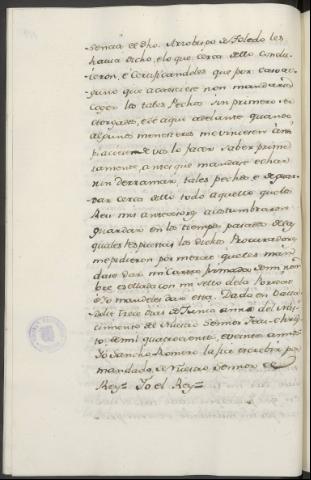 sencia el dho. Arzobispo de Toledo les
havia dicho, e lo que cerca dello conclu
ieron, é Certificandoles que por caso al
guno que acaesciese non mandaria
coger los tales Pechos sin primero ser
otorgados, e de aqui adelante quando
algunos menesteres me viniesen
de vos lo facer saber prime
ramente, antes que mandase echar
nin derramar, tales pechos e de guar
dar cerca dello todo aquello que los
Reyes mis antecesores acostumbraron
guardar en los tiempos pasados de lo
qual los dichos Procuradores
me pidieron por merced que les man
dase dar mi Carta firmada de mi nom
bre e sellada con mi sello de la Poridad
e Yo mandeles dar esta. Dada en Valla
dolid trece dias de Junio año del Naci
miento de Nuestro Señor Jesu-chris
to de mil quatrocientos, e veinte años=
Yo Sancho Romero la fice escrebir por
mandado de Nuestro Señor el
Rey= Yo el Rey=